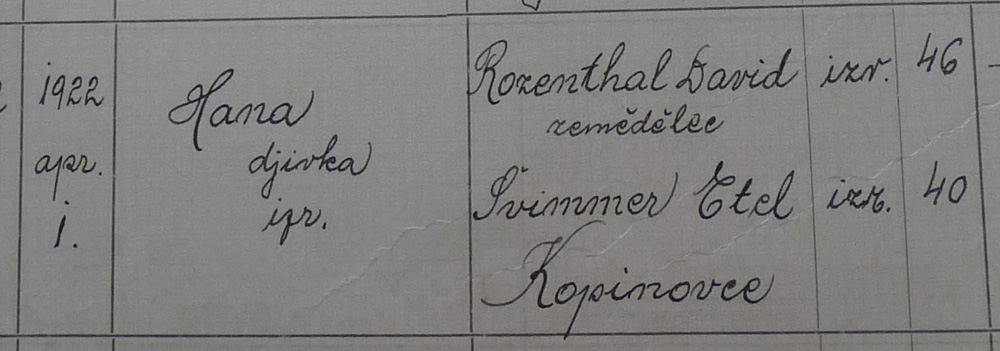 1922
apr.
1.
Hana
djivka
izr.
Rozenthal David izr. 46
zemědělec
Švimmer Etel izr. 40
Kopinovce